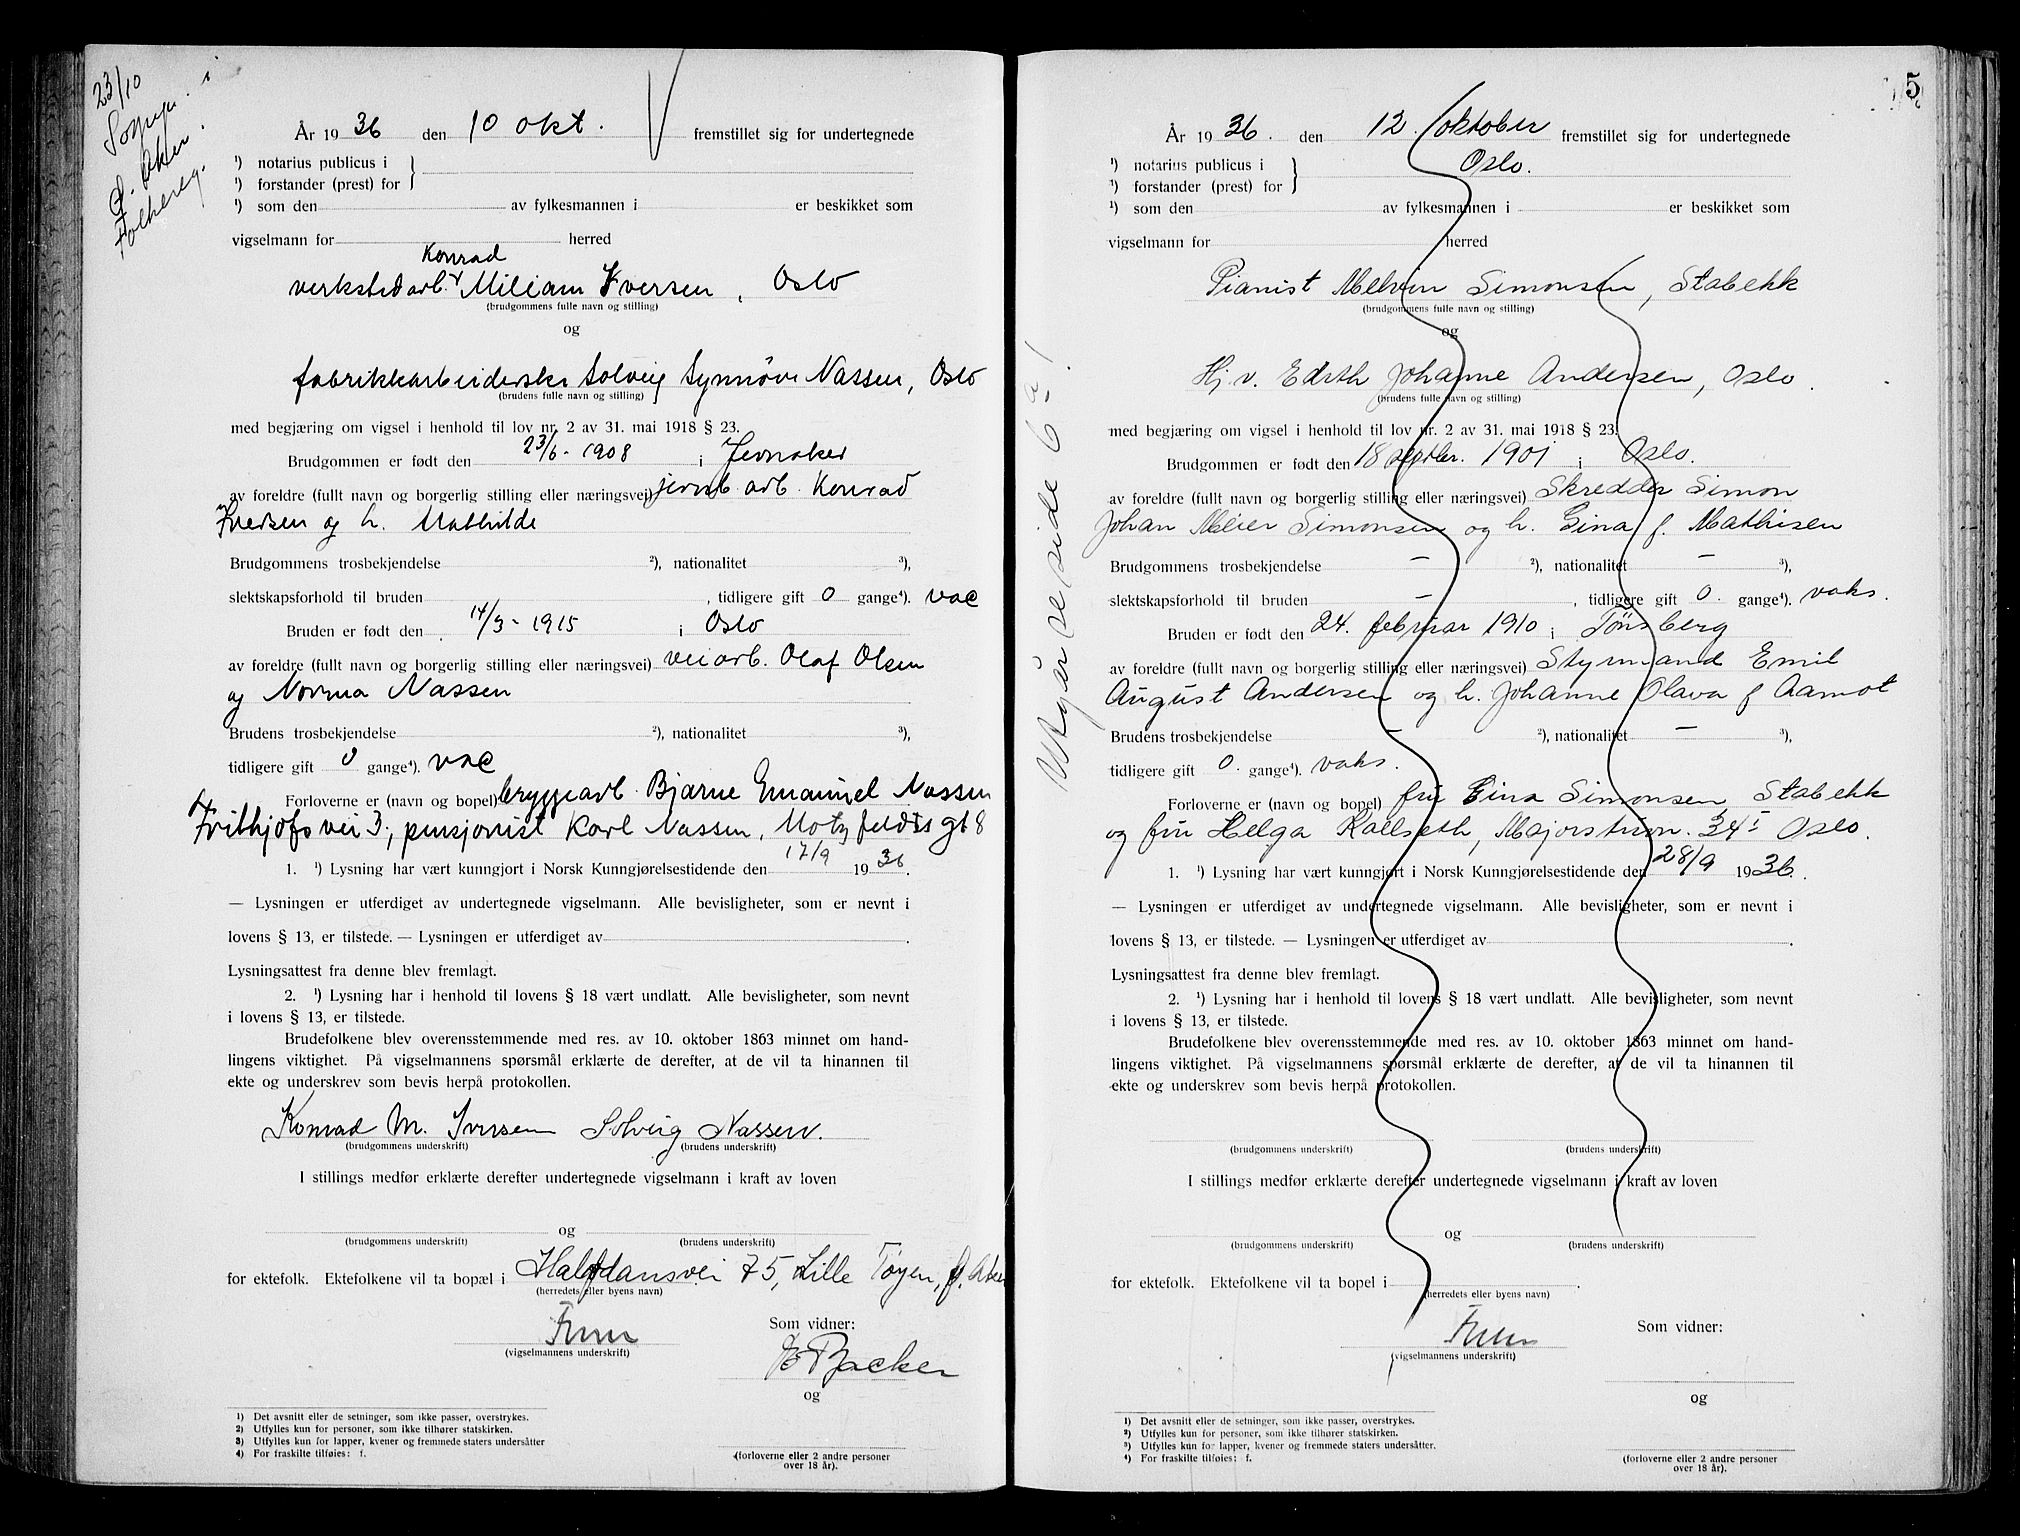 23/10
Sogn i
Ø. Aker.
Folkereg.
År 1936 den 10 okt. fremstillet sig for undertegnede
¹) notarius publicus i
¹) forstander (prest) for
¹) som den av fylkesmannen i er beskikket som
vigselmann for herred
Konrad
verkstedarb. Miliam Iversen, Oslo
(brudgommens fulle navn og stilling)
og
fabrikkarbeiderske Solveig Synnøve Nassen, Oslo
(brudens fulle navn og stilling)
med begjæring om vigsel i henhold til lov nr. 2 av 31. mai 1918 § 23.
Brudgommen er født den 23/6 - 1908 i Jevnaker
av foreldre (fullt navn og borgerlig stilling eller næringsvei) jernb. arb. Konrad
Iversen og h. Mathilde
Brudgommens trosbekjendelse ²), nationalitet ³),
slektskapsforhold til bruden , tidligere gift 0 gange⁴). vac
Bruden er født den 14/3 - 1915 i Oslo
av foreldre (fullt navn og borgerlig stilling eller næringsvei) veiarb. Olaf Olsen
og Norma Nassen
Brudens trosbekjendelse ²), nationalitet ³),
tidligere gift 0 gange⁴). vac
Forloverne er (navn og bopel) bryggearb. Bjarne Emanuel Nassen
Frithjofs vei 3, pensjonist Karl Nassen, Motzfeldts gt 8
1. ¹) Lysning har vært kunngjort i Norsk Kunngjørelsestidende den 17/9 1936.
— Lysningen er utferdiget av undertegnede vigselmann. Alle bevisligheter, som er nevnt i
lovens § 13, er tilstede. — Lysningen er utferdiget av .
Lysningsattest fra denne blev fremlagt.
2. ¹) Lysning har i henhold til lovens § 18 vært undlatt. Alle bevisligheter, som nevnt
i lovens § 13, er tilstede.
Brudefolkene blev overensstemmende med res. av 10. oktober 1863 minnet om hand-
lingens viktighet. På vigselmannens spørsmål erklærte de derefter, at de vil ta hinannen til
ekte og underskrev som bevis herpå protokollen.
Konrad M. Iversen Solveig Nassen.
(brudgommens underskrift) (brudens underskrift)
I stillings medfør erklærte derefter undertegnede vigselmann i kraft av loven
og
(brudgommens underskrift) (brudens underskrift)
for ektefolk. Ektefolkene vil ta bopæl i Halfdansvei 75, Lille Tøyen, Ø. Aker
(herredets eller byens navn)
Som vidner:
(vigselmannens underskrift)
E Backer
og
¹) Det avsnitt eller de setninger, som ikke passer, overstrykes.
²) Utfylles kun for personer, som ikke tilhører statskirken.
³) Utfylles kun for lapper, kvener og fremmede staters undersåtter
⁴) For fraskilte tilføies: f.
(forloverne eller 2 andre personer
over 18 år).
5
År 1936. den 12. oktober fremstillet sig for undertegnede
¹) notarius publicus i
Oslo.
¹) forstander (prest) for
¹) som den av fylkesmannen i er beskikket som
vigselmann for herred
Pianist Melvin Simonsen, Stabekk
(brudgommens fulle navn og stilling)
og
Hj.v. Edith Johanne Andersen, Oslo.
(brudens fulle navn og stilling)
med begjæring om vigsel i henhold til lov nr. 2 av 31. mai 1918 § 23.
Brudgommen er født den 18 septbr. 1901 i Oslo.
av foreldre (fullt navn og borgerlig stilling eller næringsvei) Skredder Simon
Johan Meier Simonsen og h. Gina f. Mathisen
Brudgommens trosbekjendelse — ²), nationalitet — ³),
slektskapsforhold til bruden — , tidligere gift 0. gange⁴). vaks.
Bruden er født den 24. februar 1910 i Tönsberg
av foreldre (fullt navn og borgerlig stilling eller næringsvei) Styrmand Emil
August Andersen og h. Johanne Olava f Aamot
Brudens trosbekjendelse — ²), nationalitet — ³),
tidligere gift 0. gange⁴). vaks.
Forloverne er (navn og bopel) fru Gina Simonsen, Stabekk
og fru Helga Kallseth, Majorstuvn. 34ᴵ Oslo.
1. ¹) Lysning har vært kunngjort i Norsk Kunngjørelsestidende den 28/9 1936.
— Lysningen er utferdiget av undertegnede vigselmann. Alle bevisligheter, som er nevnt i
lovens § 13, er tilstede. — Lysningen er utferdiget av .
Lysningsattest fra denne blev fremlagt.
2. ¹) Lysning har i henhold til lovens § 18 vært undlatt. Alle bevisligheter, som nevnt
i lovens § 13, er tilstede.
Brudefolkene blev overensstemmende med res. av 10. oktober 1863 minnet om hand-
lingens viktighet. På vigselmannens spørsmål erklærte de derefter, at de vil ta hinannen til
ekte og underskrev som bevis herpå protokollen.
(brudgommens underskrift) (brudens underskrift)
I stillings medfør erklærte derefter undertegnede vigselmann i kraft av loven
og
(brudgommens underskrift) (brudens underskrift)
for ektefolk. Ektefolkene vil ta bopel i .
(herredets eller byens navn)
Som vidner:
(vigselmannens underskrift)
og
¹) Det avsnitt eller de setninger, som ikke passer, overstrykes.
²) Utfylles kun for personer, som ikke tilhører statskirken.
³) Utfylles kun for lapper, kvener og fremmede staters undersåtter.
⁴) For fraskilte tilføies: f.
(forloverne eller 2 andre personer
over 18 år).
Utgår se side 6ª!